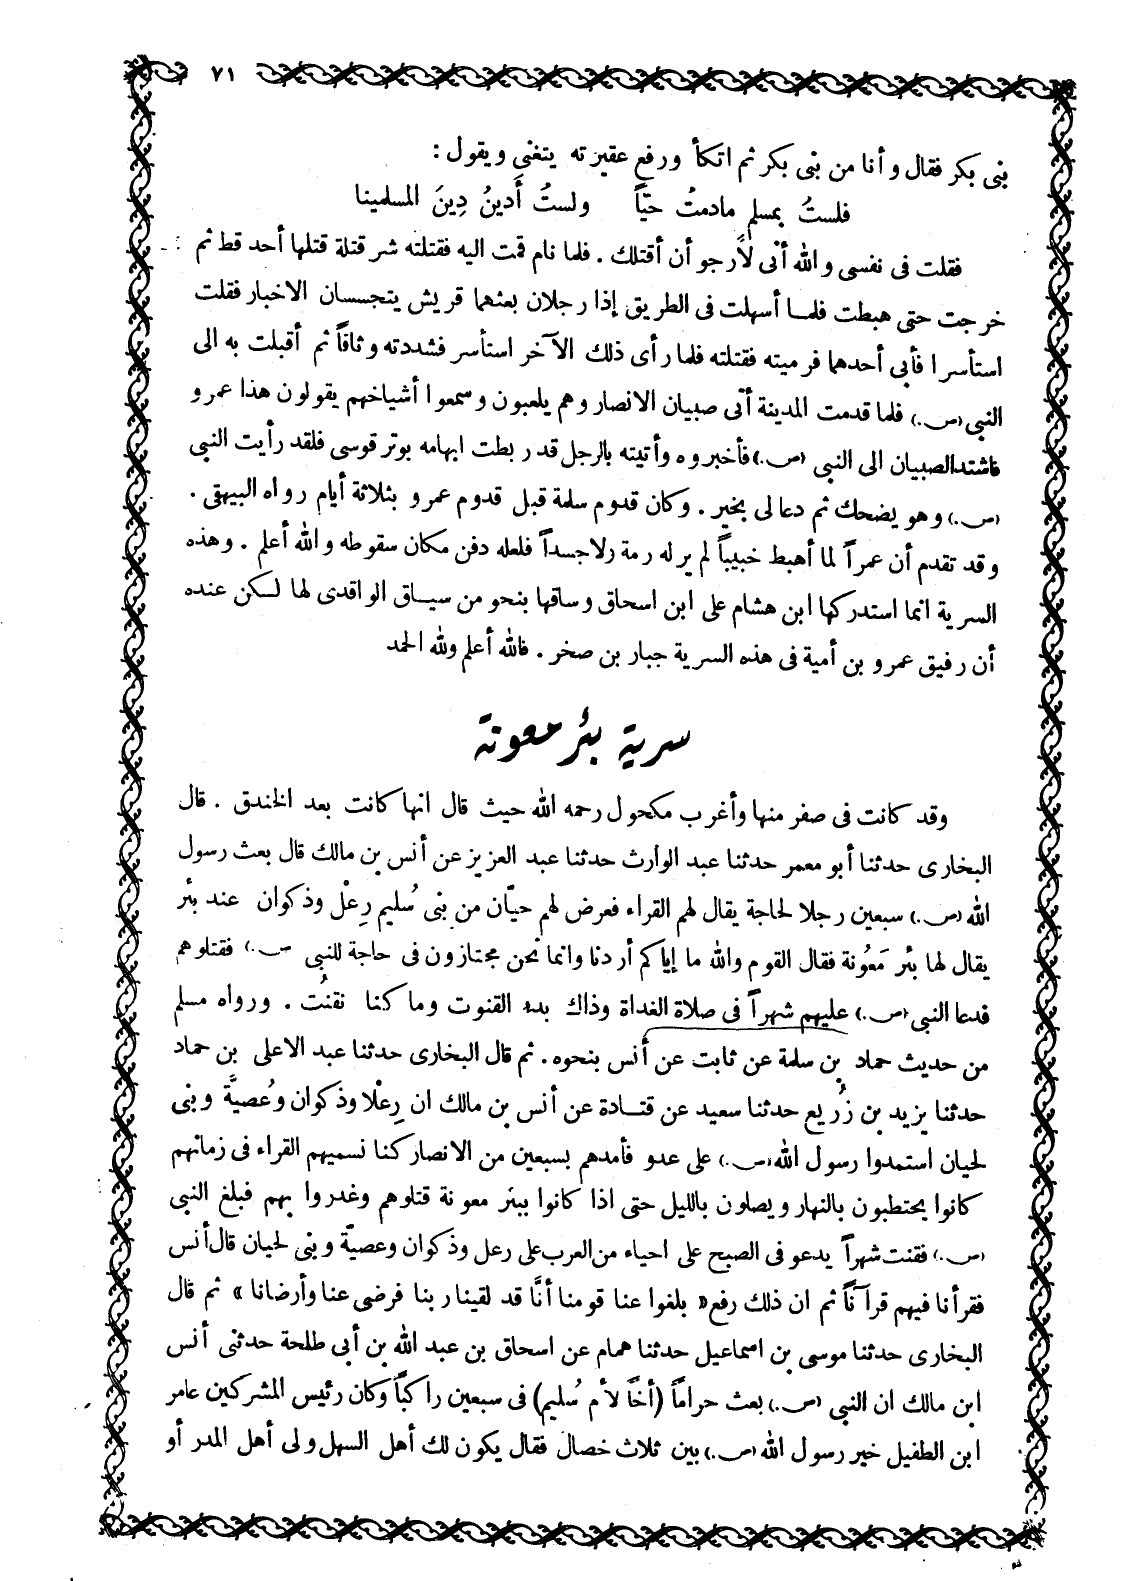 ٧١
بنى بكر فقال وأنا من بنى بكر ثم اتكأ ورفع عقيرته يتغنى ويقول :
فلستُ بمسلم مادمتُ حيّاً ولستُ أَدينُ دِينَ المسلمينا
فقلت فى نفسى والله أنى لأرجو أن أقتلك . فلما نام قمت اليه فقتلته شر قتلة قتلها أحد قط ثم
خرجت حتى هبطت فلما أسهلت فى الطريق إذا رجلان بعثهما قريش يتجسسان الاخبار فقلت
استأسرا فأبى أحدهما فرميته فقتلته فلما رأى ذلك الآخر استأسر فشددته وثاقاً ثم أقبلت به الى
النبى (ص.) فلما قدمت المدينة أتى صبيان الانصار وهم يلعبون وسمعوا أشياخهم يقولون هذا عمرو
فاشتد الصبيان الى النبى (ص.) فأخبروه وأتيته بالرجل قد ربطت ابهامه بوتر قوسى فلقد رأيت النبى
(ص.) وهو يضحك ثم دعا لى بخير . وكان قدوم سلمة قبل قدوم عمرو بثلاثة أيام رواه البيهقى .
وقد تقدم أن عمراً لما أهبط خبيباً لم ير له رمة ولا جسداً فلعله دفن مكان سقوطه والله أعلم . وهذه
السرية انما استدركها ابن هشام على ابن اسحاق وساقها بنحو من سياق الواقدى لها لكن عنده
أن رفيق عمرو بن أمية فى هذه السرية جبار بن صخر . فالله أعلم ولله الحمد
سرية بئر معونة
وقد كانت فى صفر منها وأغرب مكحول رحمه الله حيث قال انها كانت بعد الخندق . قال
البخارى حدثنا أبو معمر حدثنا عبد الوارث حدثنا عبد العزيز عن أنس بن مالك قال بعث رسول
الله (ص.) سبعين رجلا لحاجة يقال لهم القراء فعرض لهم حيّان من بنى سُليم رِعْل وذكوان عند بئر
يقال لها بئر مَعُونة فقال القوم والله ما إياكم أردنا وانما نحن مجتازون فى حاجة للنبى (ص.) فقتلوهم
فدعا النبى (ص.) عليهم شهراً فى صلاة الغداة وذاك بدء القنوت وما كنا نقنُت . ورواه مسلم
من حديث حماد بن سلمة عن ثابت عن أنس بنحوه . ثم قال البخارى حدثنا عبد الاعلى بن حماد
حدثنا يزيد بن زُريع حدثنا سعيد عن قتادة عن أنس بن مالك ان رِعْلا وذكوان وعُصيَّة وبنى
لحيان استمدوا رسول الله (ص.) على عدو فأمدهم بسبعين من الانصار كنا نسميهم القراء فى زمانهم
كانوا يحتطبون بالنهار ويصلون بالليل حتى اذا كانوا ببئر معونة قتلوهم وغدروا بهم فبلغ النبى
(ص.) فقنت شهراً يدعو فى الصبح على احياء من العرب على رعل وذكوان وعصيّة وبنى لحيان قال أنس
فقرأنا فيهم قرآنًا ثم ان ذلك رفع « بلغوا عنا قومنا أنَّا قد لقينا ربنا فرضى عنا وأرضانا » ثم قال
البخارى حدثنا موسى بن اسماعيل حدثنا همام عن اسحاق بن عبد الله بن أبى طلحة حدثنى أنس
ابن مالك ان النبى (ص.) بعث حراماً (أخًا لأم سُليم) فى سبعين راكباً وكان رئيس المشركين عامر
ابن الطفيل خير رسول الله (ص.) بين ثلاث خصال فقال يكون لك أهل السهل ولى أهل المدر أو